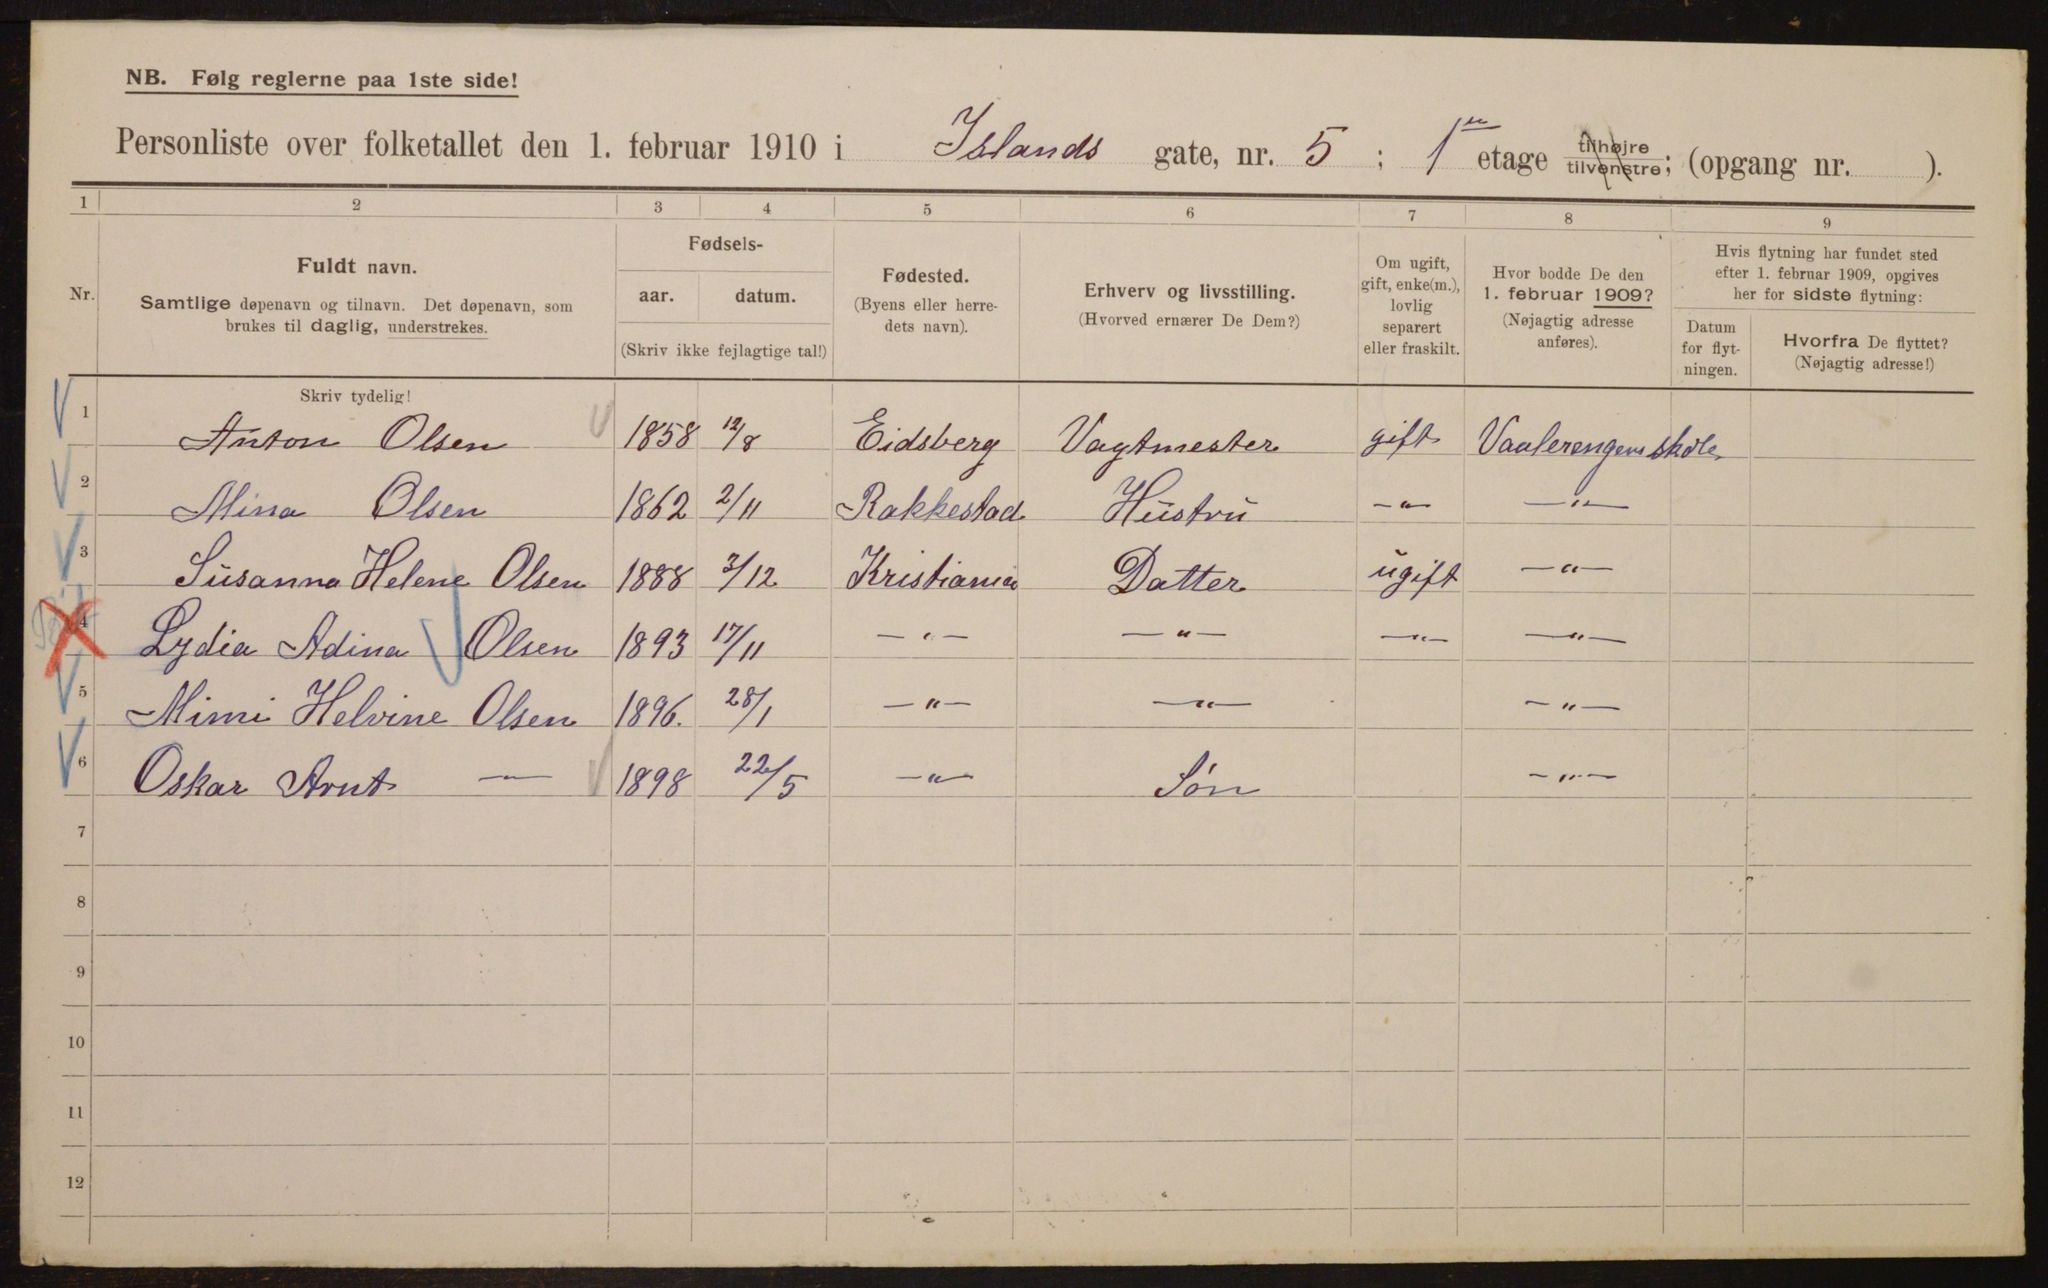 NB. Følg reglerne paa 1ste side!
Personliste over folketallet den 1. februar 1910 i Islands gate, nr. 5 ; 1ste etage tilhøjre tilvenstre; (opgang nr. ).
1 2 3 4 5 6 7 8 9
Nr.
Fuldt navn.
Samtlige døpenavn og tilnavn. Det døpenavn, som
brukes til daglig, understrekes.
Fødsels-
aar. datum.
(Skriv ikke fejlagtige tal!)
Fødested.
(Byens eller herre-
dets navn).
Erhverv og livsstilling.
(Hvorved ernærer De Dem?)
Om ugift,
gift, enke(m.),
lovlig
separert
eller fraskilt.
Hvor bodde De den
1. februar 1909?
(Nøjagtig adresse
anføres).
Hvis flytning har fundet sted
efter 1. februar 1909, opgives
her for sidste flytning:
Datum
for flyt-
ningen.
Hvorfra De flyttet?
(Nøjagtig adresse!)
Skriv tydelig!
1 Anton Olsen 1858 12/8 Eidsberg Vagtmester gift Vaalerengens skole
2 Mina Olsen 1862 2/11 Rakkestad Hustru —"— —"—
3 Susanna Helene Olsen 1888 3/12 Kristiania Datter ugift —"—
4 Lydia Adina Olsen 1893 17/11 —"— —"— —"— —"—
5 Mimi Helvine Olsen 1896. 28/1 —"— —"— —"—
6 Oskar Arnt —"— 1898 22/5 —"— Søn —"—
7
8
9
10
11
12